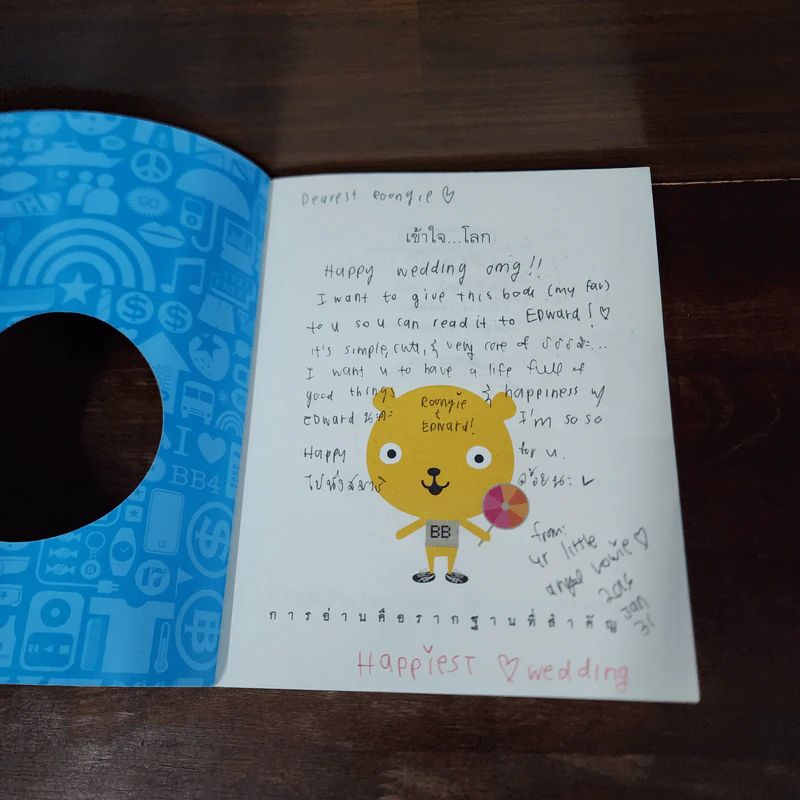 Dearest Roongie ♡
เข้าใจ...โลก
Happy wedding omg!!
I want to give this book (my fav)
to u so u can read it to EDward! ♡
it's simple, cute, & very core of ธรรมะ...
I want u to have a life full of
good things & happiness w/
EDward นะคะ I'm so so
Happy for u.
ไปนั่งสมาธิ ด้วยนะ
Roongie
&
EDward!
BB
from:
ur little
angel
Jan
31
การอ่านคือรากฐานที่สำคัญ
Happiest ♡ wedding
I ♥
BB4
GO
17